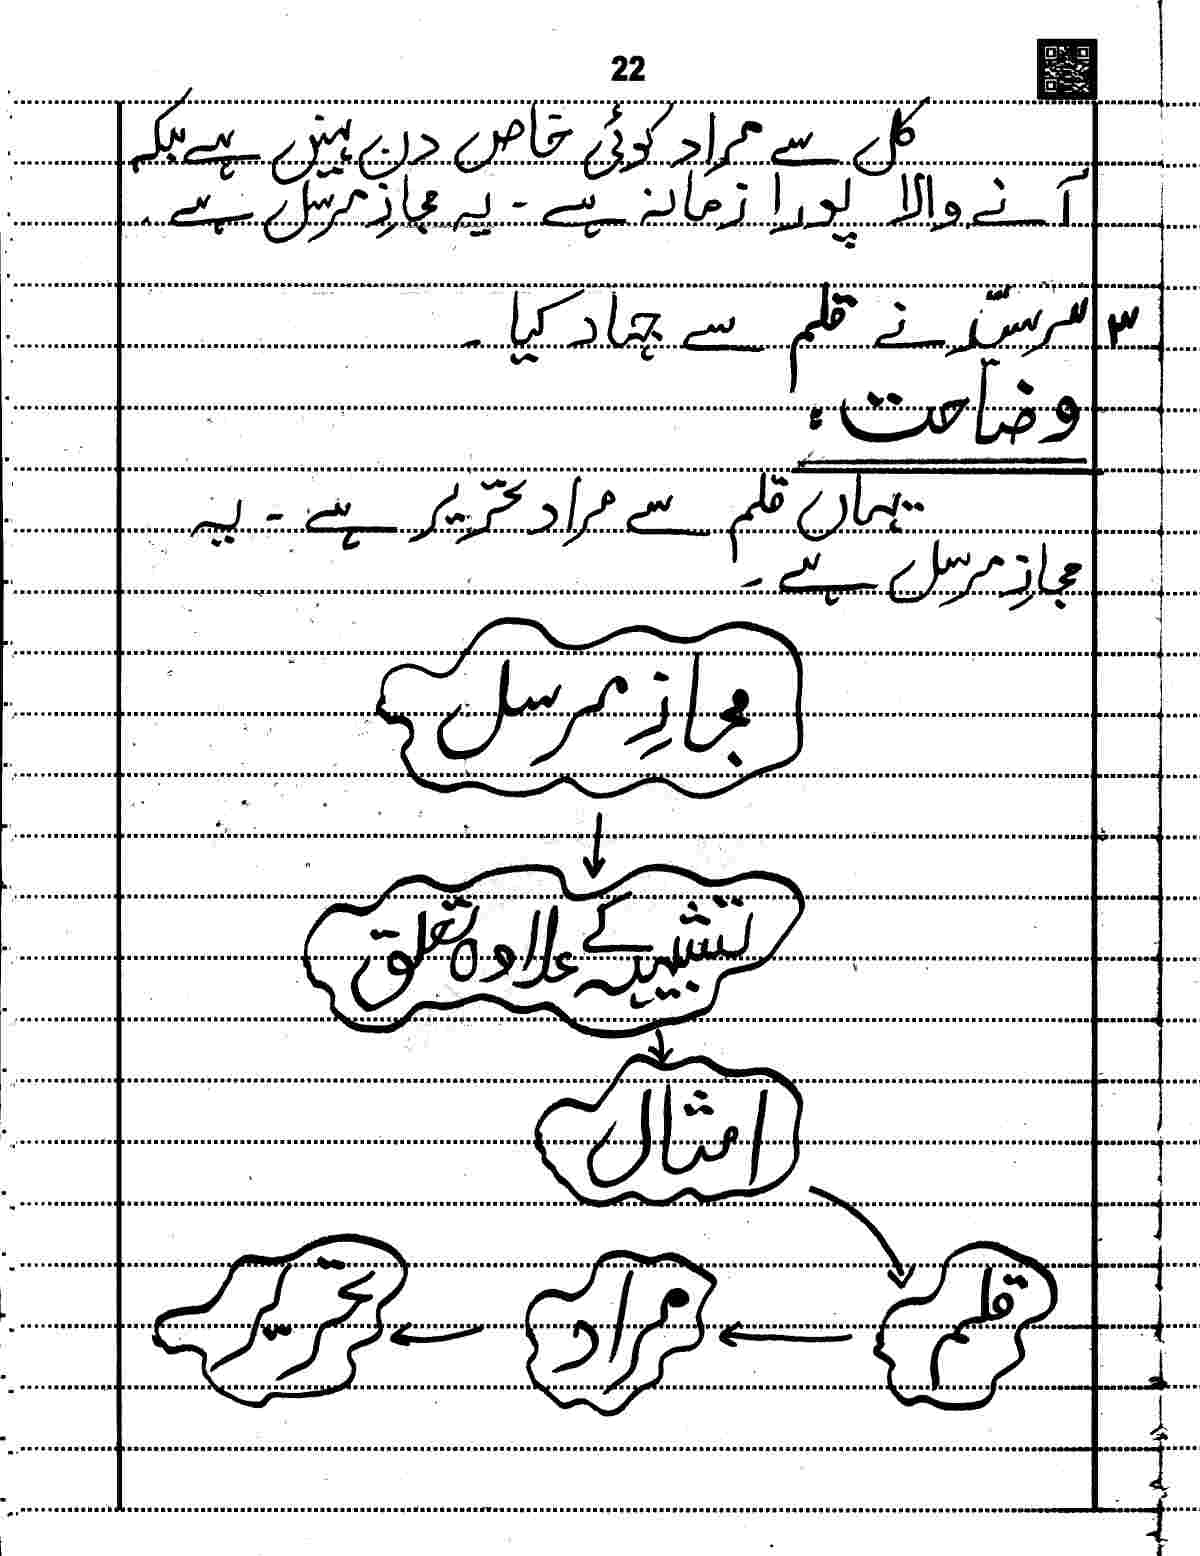 22
کل سے مراد کوئی خاص دن نہیں ہے بلکہ
آنے والا پورا زمانہ ہے ۔ یہ مجازِ مرسل ہے ۔
۳ سرسیّد نے قلم سے جہاد کیا ۔
وضاحت :
یہاں قلم سے مراد تحریر ہے ۔ یہ
مجازِ مرسل ہے ۔
مجازِ مرسل
تشبیہہ کے علاوہ تعلق
امثال
قلم
مراد
تحریر